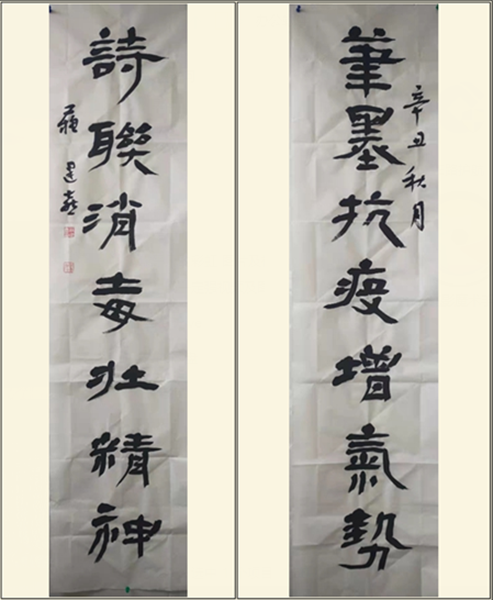 辛丑秋月
筆墨抗疫增氣勢
詩聯消毒壯精神
蘇